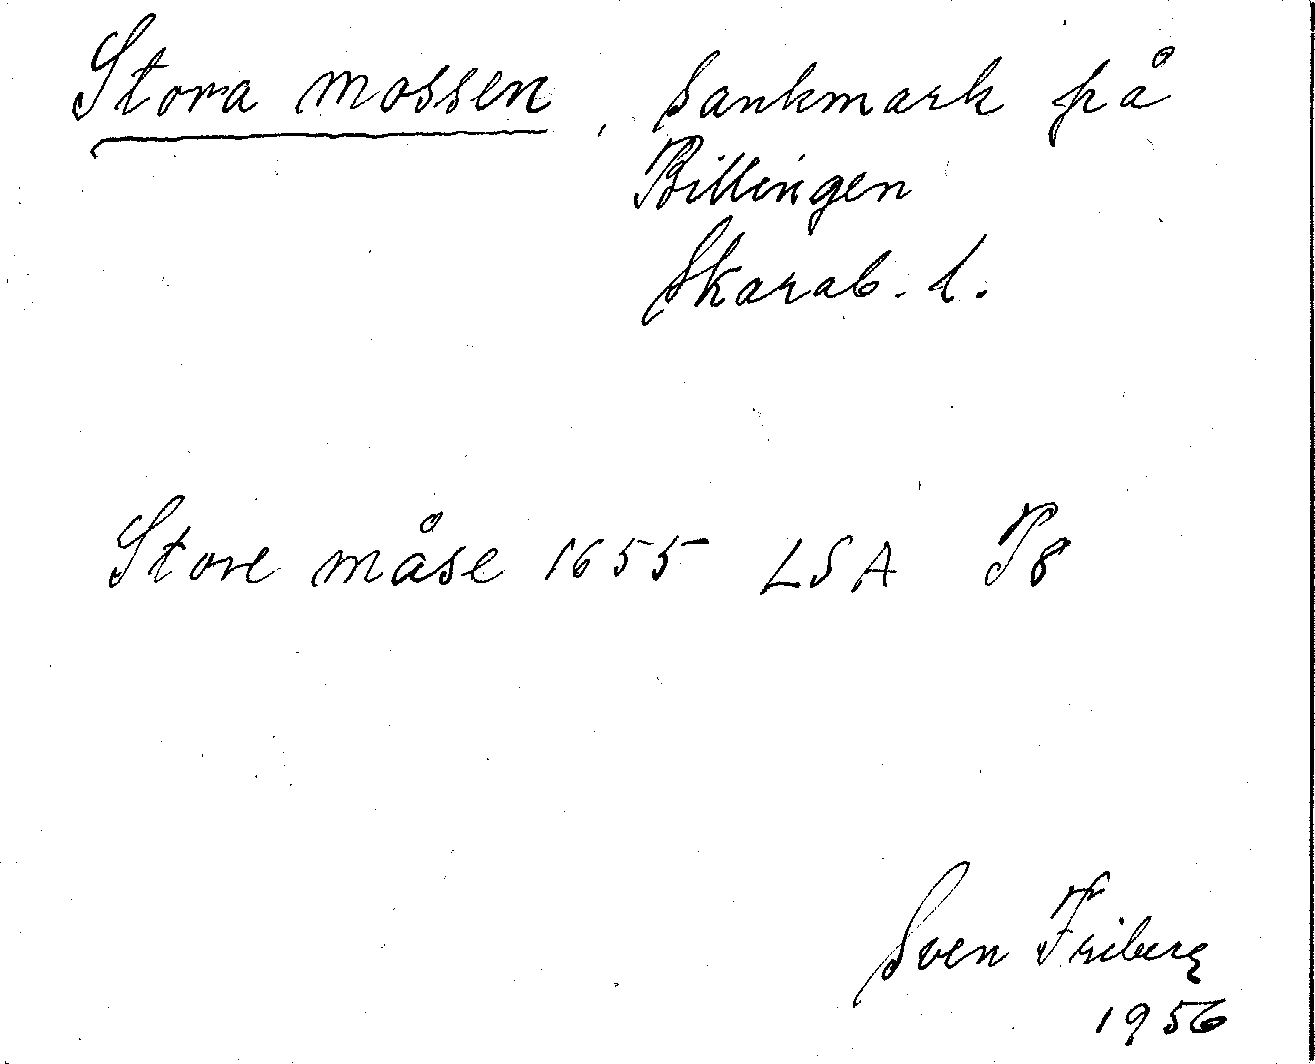 Stora mossen, Sankmark på
Billingen
Skarab. l.
Store måse 1655 LSA P8
Sven Friberg
1956